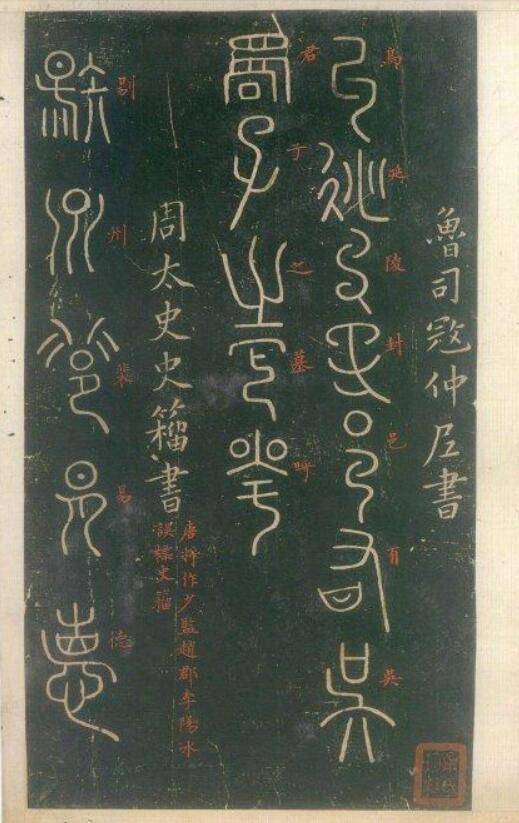 魯司寇仲尼書
烏延陵封邑有吳
君子之墓呼
周太史史籀書
唐將作少監趙郡李陽水
誤標史籀
州裴易德